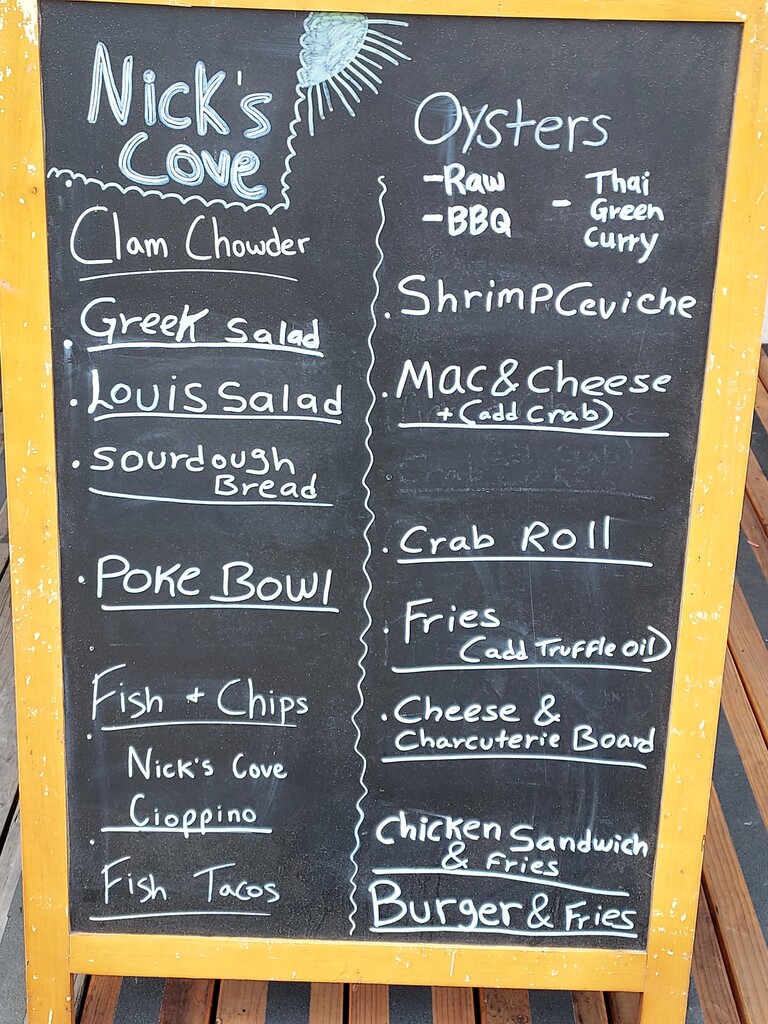 Nick's
Cove
Clam Chowder
. Greek Salad
. Louis Salad
. Sourdough
Bread
. Poke Bowl
Fish + Chips
Nick's Cove
Cioppino
Fish Tacos
Oysters
- Raw
- BBQ
- Thai
Green
Curry
. Shrimp Ceviche
. Mac & Cheese
+ (add Crab)
. Crab Roll
. Fries
(add Truffle oil)
. Cheese &
Charcuterie Board
Chicken Sandwich
& Fries
Burger & Fries